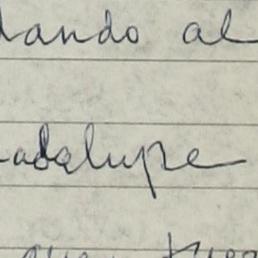 dando al
uadalupe